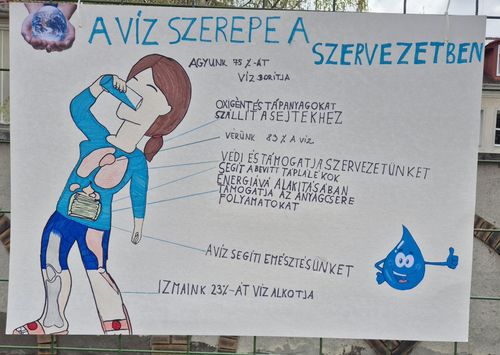 A VÍZ SZEREPE A
SZERVEZETBEN
AGYUNK 75 %-ÁT
VÍZ BORÍTJA
OXIGÉNT ÉS TÁPANYAGOKAT
SZÁLLÍT A SEJTEKHEZ
VÉRÜNK 83 % A VÍZ
VÉDI ÉS TÁMOGATJA SZERVEZETÜNKET
SEGÍT A BEVITT TÁPLÁLÉKOK
ENERGIÁVÁ ALAKÍTÁSÁBAN
TÁMOGATJA AZ ANYAGCSERE
FOLYAMATOKAT
A VÍZ SEGÍTI EMÉSZTÉSÜNKET
IZMAINK 23%-ÁT VÍZ ALKOTJA